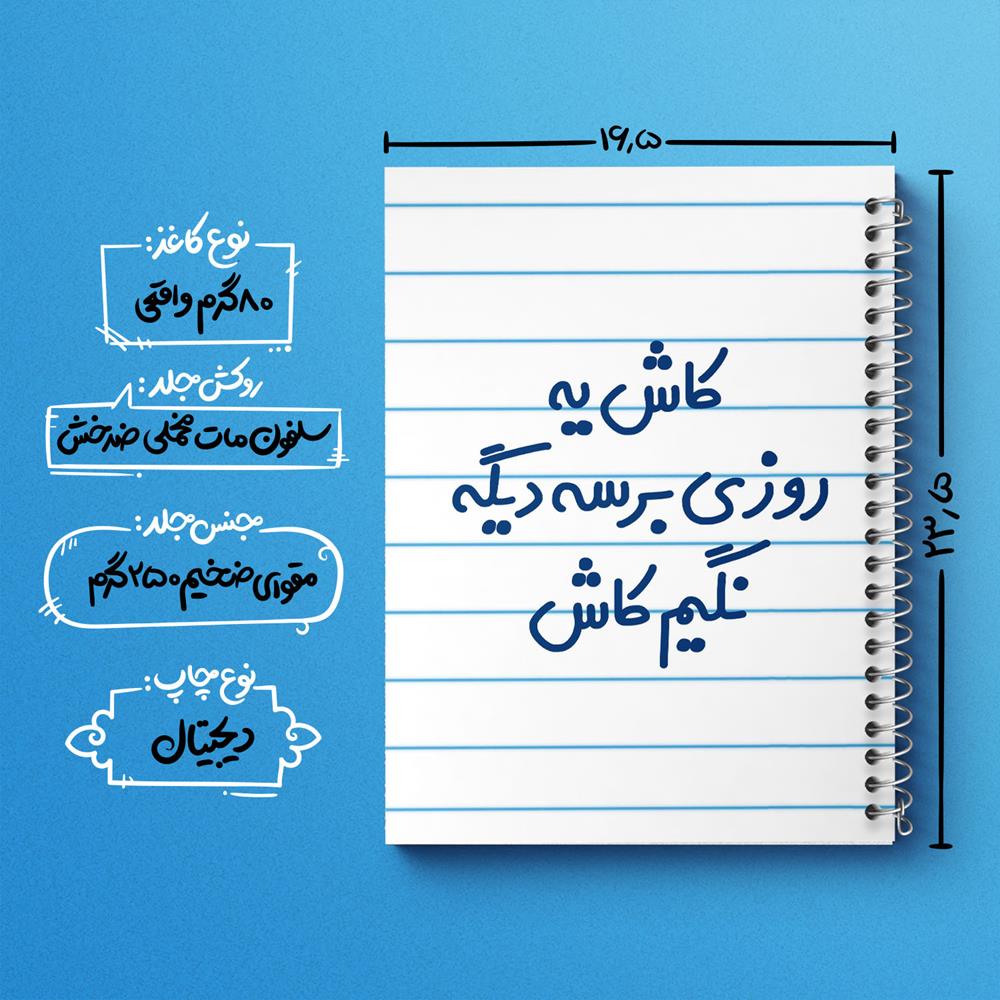 ۱۶,۵
کاش یه
روزی برسه دیگه
نگیم کاش
۲۳,۵
نوع کاغذ:
۸۰گرم واقعی
روکش جلد:
سلفون مات مخملی ضدخش
جنس جلد:
مقوای ضخیم ۲۵۰گرم
نوع چاپ:
دیجیتال